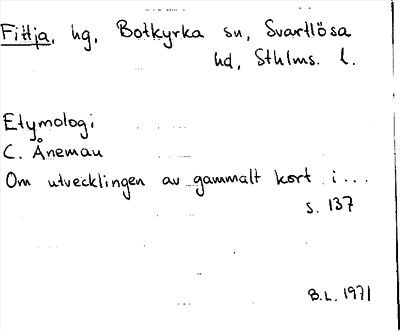 Fittja, hg, Botkyrka sn, Svartlösa
hd, Sthlms. l.
Etymologi
C. Åneman
Om utvecklingen av gammalt kort i...
s. 137
B.L. 1971